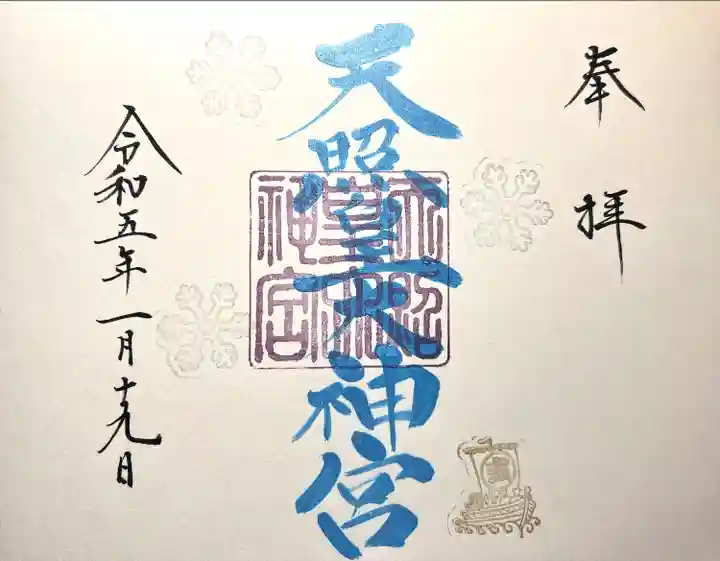 奉拝
天照皇大神宮
天照皇大神宮
令和五年一月十九日